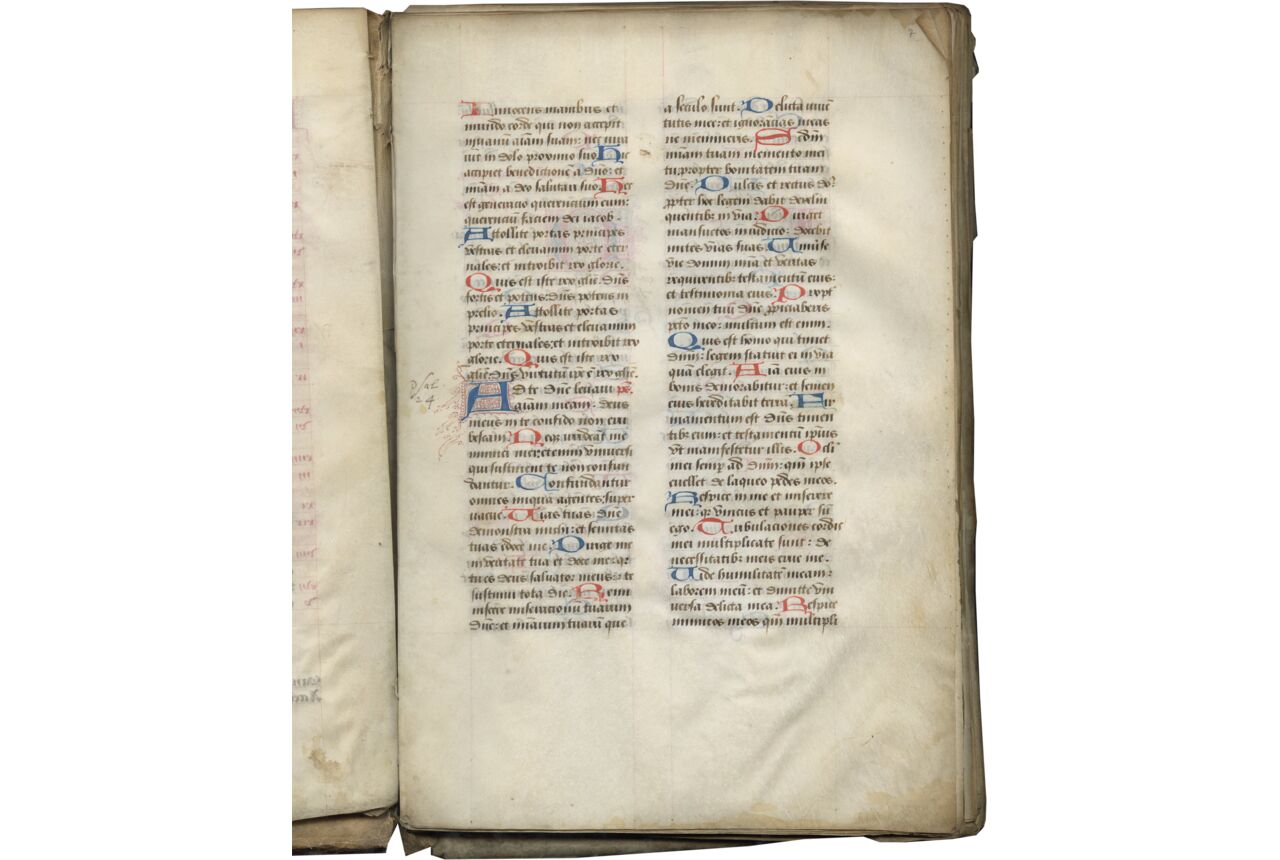 7
Innocens manibus et
mundo corde qui non accepit
in vanū aīam suam: nec iura
uit in dolo proximo suo Hic
accipiet benedictionē a dno: et
mīam a deo salutari suo. Hec
est generacio querentium eum:
querenciū faciem dei iacob.
Attollite portas principes
vestras et eleuamini porte eter
nales: et introibit rex glorie.
Quis est iste rex glīe: dn̄s
fortis et potens: dn̄s potens in
prelio. Attollite portas
principes vestras et eleuamini
porte eternales: et introibit rex
glorie. Quis est iste rex
glīe: dn̄s virtutū ipē ē rex glīe.
Psal
24
AD te dn̄e leuaui ps.
aīam meam: deus
meus in te confido non eru
bescam. Neq; irrideāt me
inimici mei: etenim vniuersi
qui sustinent te non confun
dantur. Confundantur
omnes iniqua agentes: super
uacue. Uias tuas dn̄e
demonstra michi: et semitas
tuas edoce me. Dirige me
in veritate tua et doce me: qr
tu es deus saluator meus: et te
sustinui tota die. Remi
niscere miseracionū tuarum
dn̄e: et mīarum tuarū que
a seculo sunt. Delicta iuuē
tutis mee: et ignorācias meas
ne memineris. Scdm̄
mīam tuam memento mei
tu: propter bonitatem tuam
dn̄e. Dulcis et rectus dn̄s
ꝓpter hoc legem dabit delin
quentibꝫ in via. Diriget
mansuetos in iudicio: docebit
mites vias suas. Uniuse
vie domini mīa et veritas
requirentibꝫ testamentū eius:
et testimonia eius. Propt
nomen tuū dn̄e ꝓpiciaberis
pctō meo: multum est enim.
Quis est homo qui timet
dn̄m: legem statuit ei in via
quā elegit. Aīa eius in
bonis demorabitur: et semen
eius hereditabit terrā. Fir
mamentum est dn̄s timen
tibꝫ eum: et testamentū ipsius
vt manifestetur illis. Oculi
mei semꝑ ad dn̄m: qm̄ ipse
euellet de laqueo pedes meos.
Respice in me et miserere
mei: qr vnicus et pauper sū
ego. Tribulaciones cordis
mei multiplicate sunt: de
necessitatibꝫ meis erue me.
Uide humilitatē meam:
laborem meū: et dimitte vni
uersa delicta mea. Respice
inimicos meos qm̄ multipli